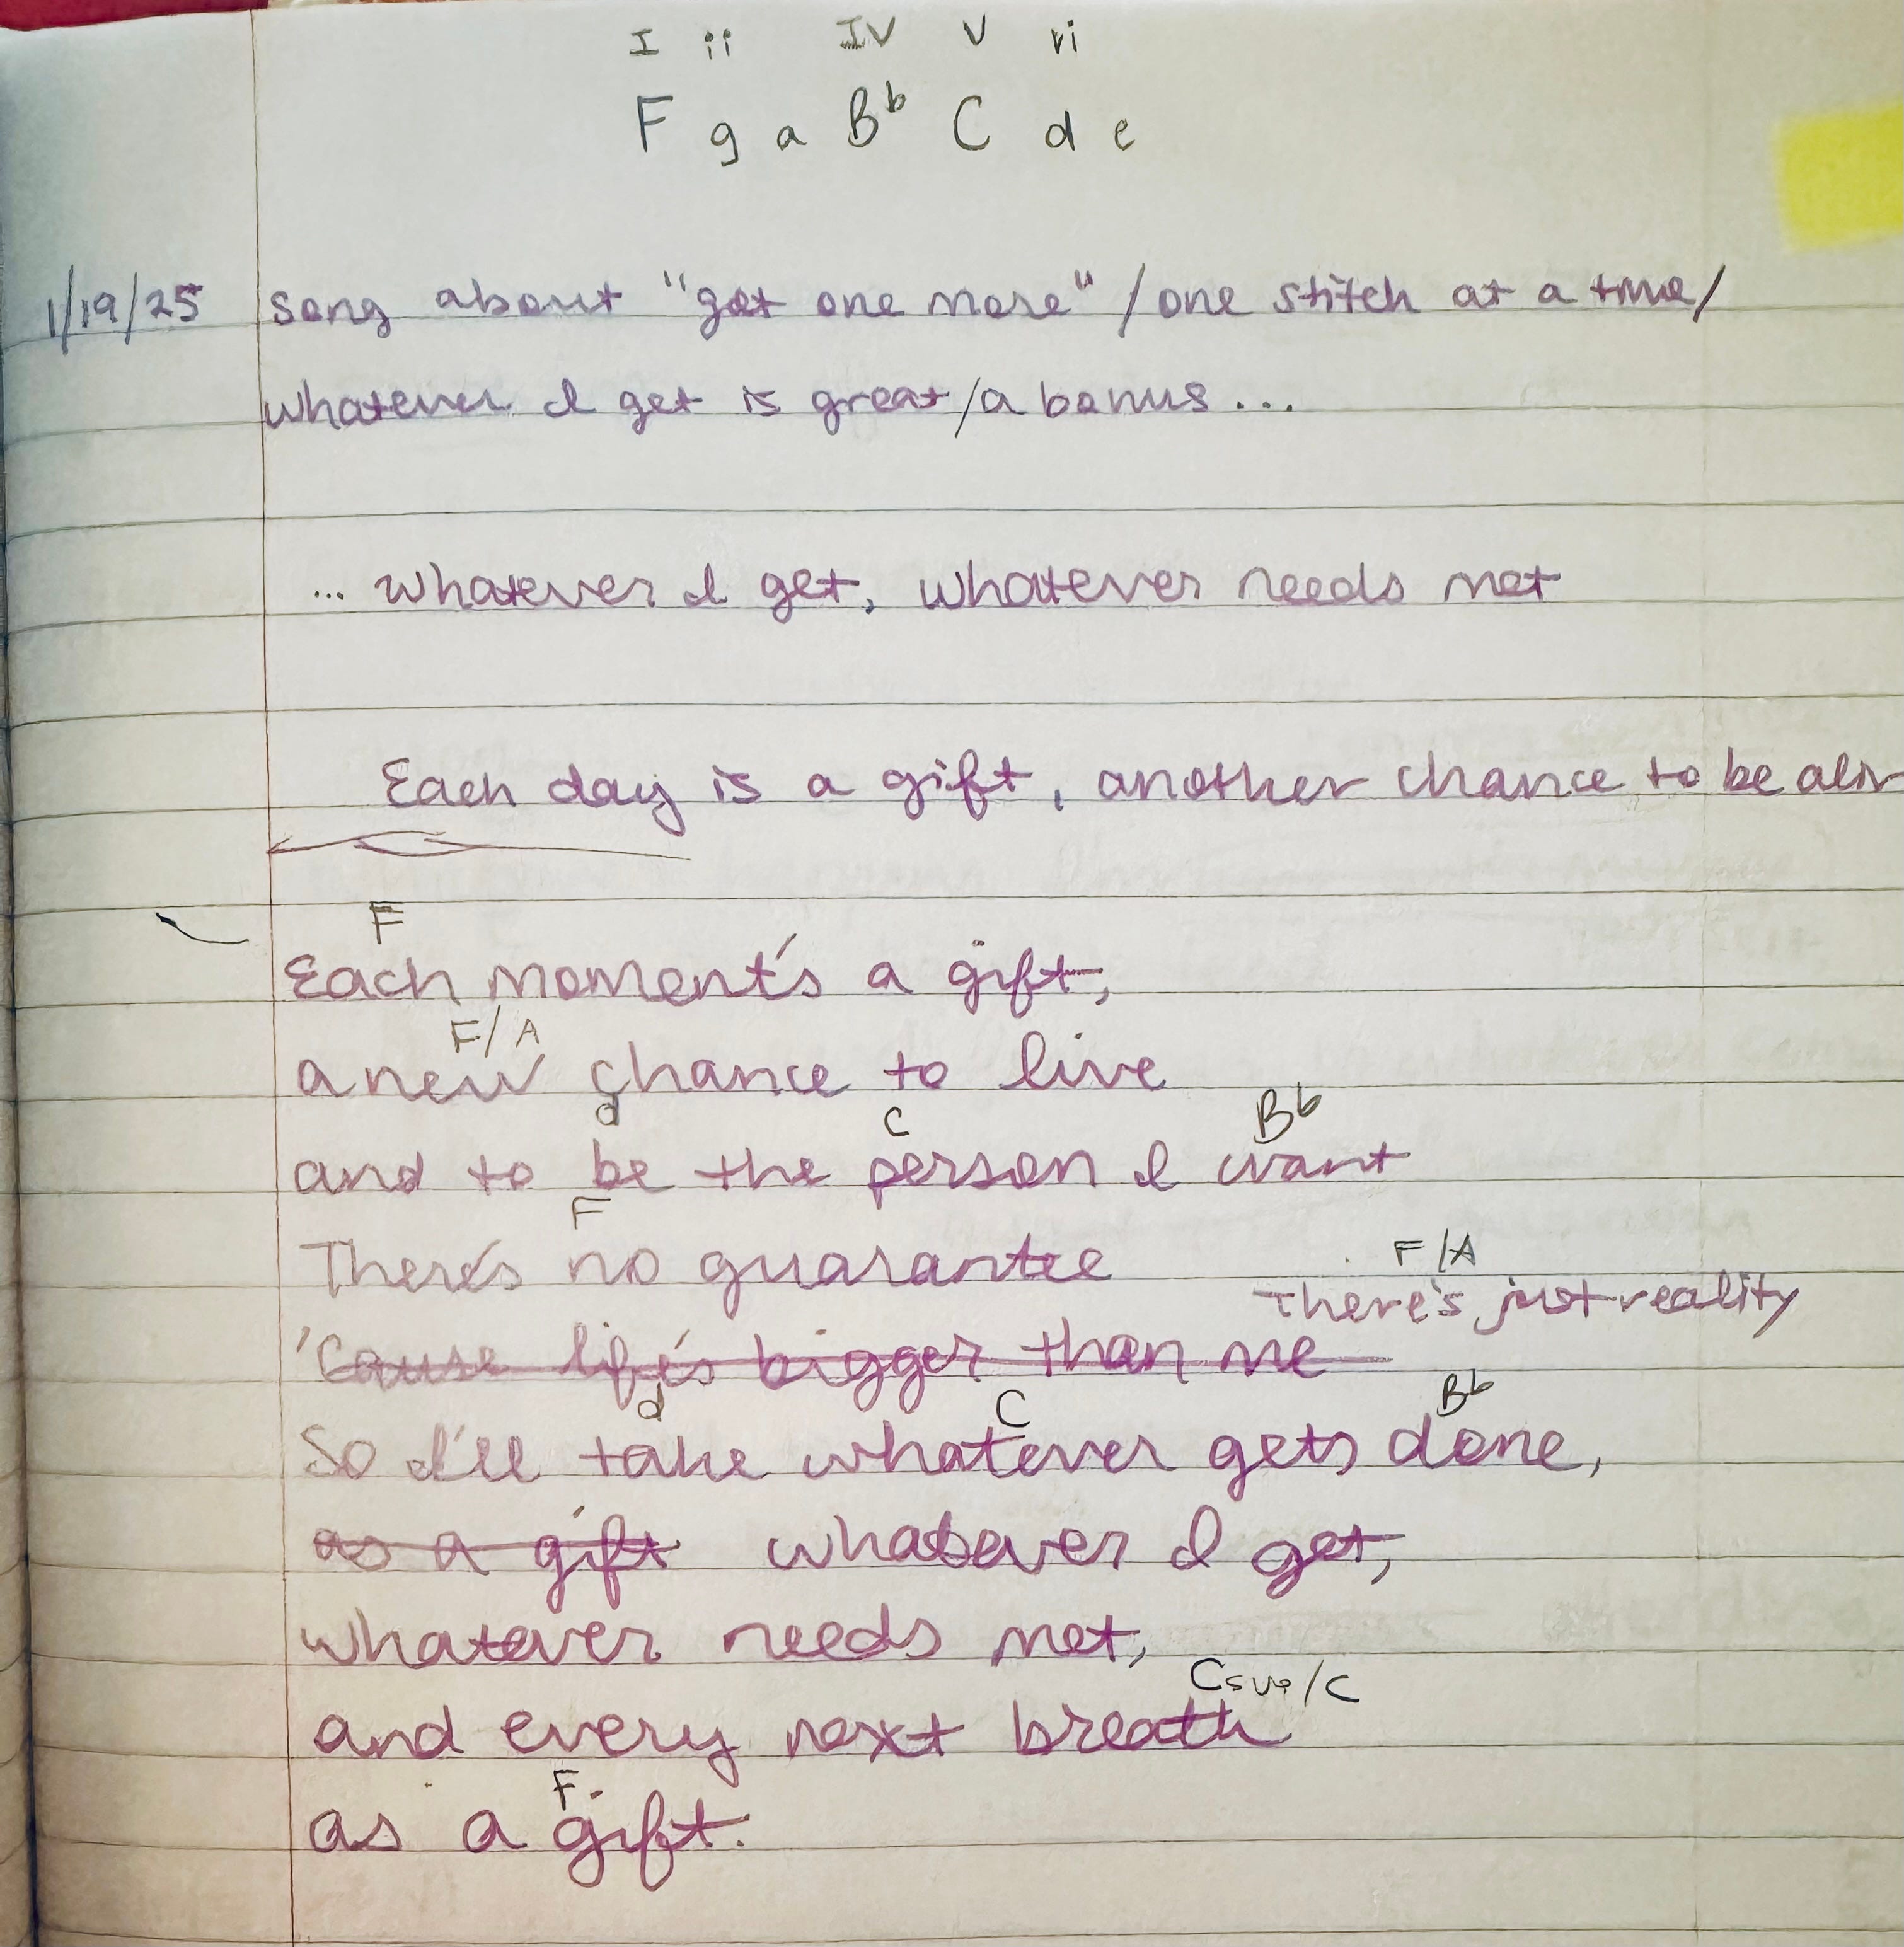 I ii IV V vi
F g a Bb C d e
1/19/25 song about "get one more" / one stitch at a time/
whatever I get is great/a bonus...
... whatever I get, whatever needs met
Each day is a gift, another chance to be aliv
F
Each moment's a gift,
F/A
a new chance to live
d C Bb
and to be the person I want
F
There's no guarantee
F/A
There's just reality
'Cause life's bigger than me
d C Bb
So I'll take whatever gets done,
as a gift whatever I get,
whatever needs met,
Csus/C
and every next breath
F
as a gift.